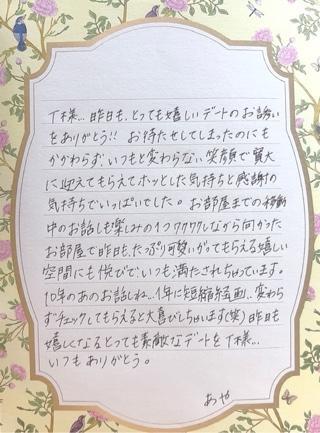 T様… 昨日も、とっても嬉しいデートのお誘い
をありがとう!! お待たせしてしまったのにも
かかわらず、いつもと変わらない笑顔で寛大
に迎えてもらえてホッとした気持ちと感謝の
気持ちでいっぱいでした。お部屋までの移動
中のお話しも楽しみの1つワクワクしながら向かった
お部屋で昨日も、たっぷり可愛いがってもらえる嬉しい
空間にも悦びで、いつも満たされちゃっています。
10年のあのお話しね…1年に短縮計画…変わら
ずチェックしてもらえると大喜びしちゃいます(笑) 昨日も
嬉しくなるとっても素敵なデートをT様…
いつもありがとう。
あや